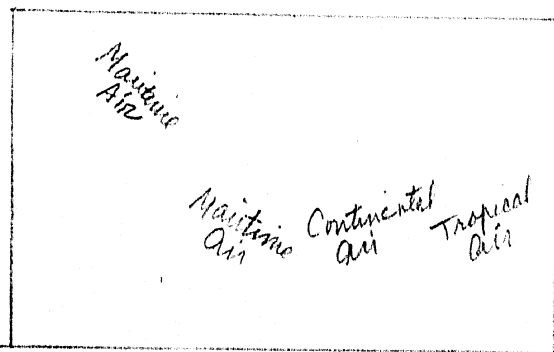 Maritime
Air
Maritime
Air
Continental
Air
Tropical
Air